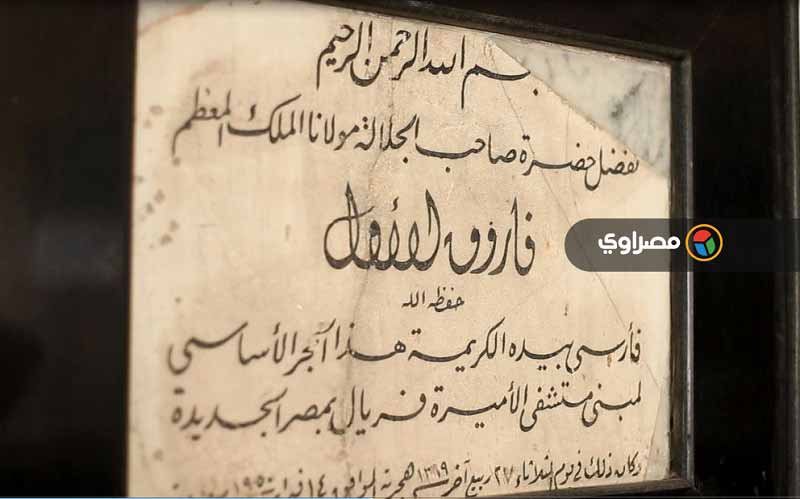 بسم الله الرحمن الرحيم
تفضل حضرة صاحب الجلالة مولانا الملك المعظم
فاروق الأول
حفظه الله
فأرسى بيده الكريمة هذا الحجر الأساسي
لمبنى مستشفى الأميرة فريال بمصر الجديدة
وكان ذلك في يوم الثلاثاء ٢٧ ربيع آخر سنة ١٣٦٩ هجرية الموافق ١٤ فبراير ١٩٥٠
مصراوي